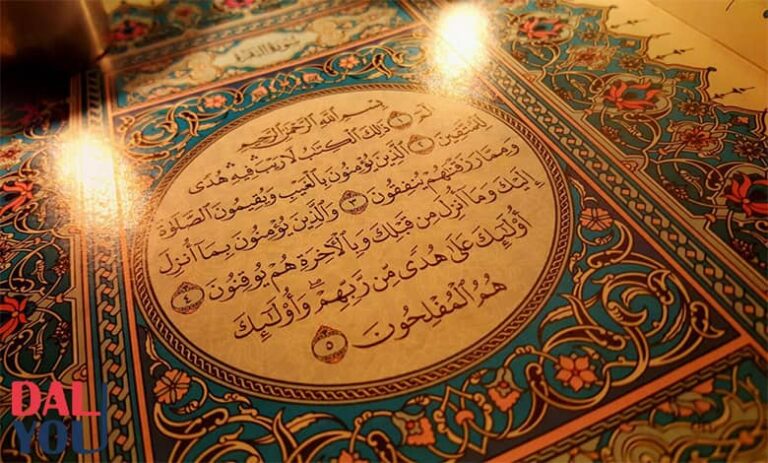 سورة البقرة
بِسْمِ ٱللَّهِ ٱلرَّحْمَٰنِ ٱلرَّحِيمِ
الٓمٓ ١ ذَٰلِكَ ٱلْكِتَٰبُ لَا رَيْبَ ۛ فِيهِ ۛ هُدًى
لِّلْمُتَّقِينَ ٢ ٱلَّذِينَ يُؤْمِنُونَ بِٱلْغَيْبِ وَيُقِيمُونَ ٱلصَّلَوٰةَ
وَمِمَّا رَزَقْنَٰهُمْ يُنفِقُونَ ٣ وَٱلَّذِينَ يُؤْمِنُونَ بِمَآ أُنزِلَ
إِلَيْكَ وَمَآ أُنزِلَ مِن قَبْلِكَ وَبِٱلْءَاخِرَةِ هُمْ يُوقِنُونَ ٤
أُو۟لَٰٓئِكَ عَلَىٰ هُدًى مِّن رَّبِّهِمْ ۖ وَأُو۟لَٰٓئِكَ
هُمُ ٱلْمُفْلِحُونَ ٥
DAL
YOU